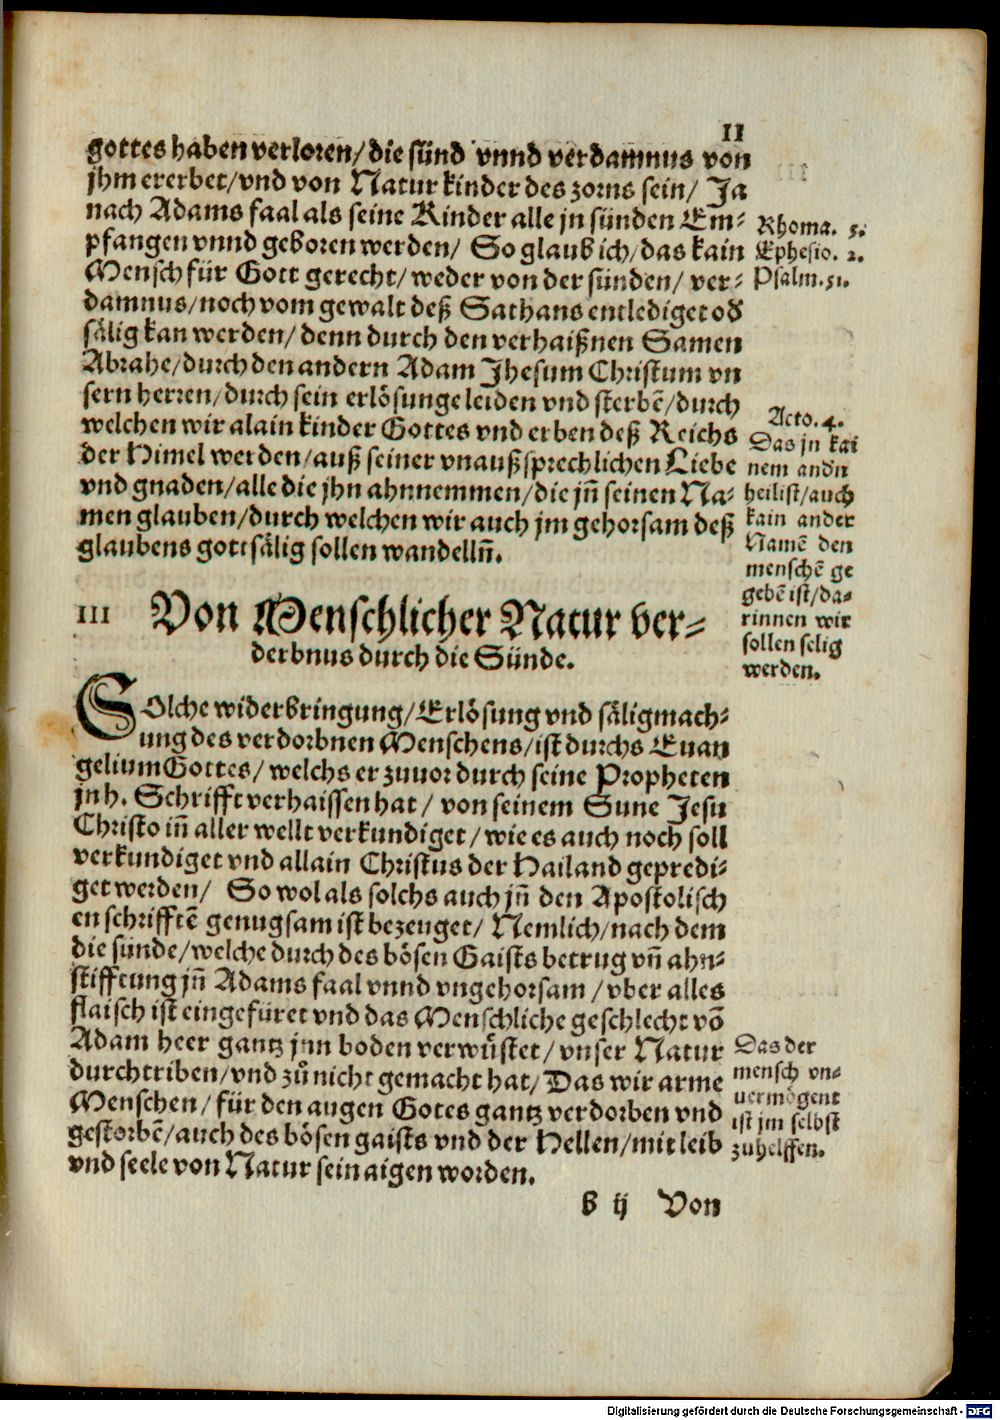 11
gottes haben verloren/ die sünd vnnd verdamnus von
jhm ererbet/ vnd von Natur kinder des zorns sein/ Ja
nach Adams faal als seine Kinder alle jn sünden Em⸗
pfangen vnnd geboren werden/ So glaub ich/ das kain
Mensch für Gott gerecht/ weder von der sünden/ ver⸗
damnus/ noch vom gewalt deß Sathans entlediget od
sälig kan werden/ denn durch den verhaißnen Samen
Abrahe/ durch den andern Adam Jhesum Christum vn
sern herren/ durch sein erlösunge leiden vnd sterbē/ durch
welchen wir alain kinder Gottes vnd erben deß Reichs
der Himel werden/ auß seiner vnaußsprechlichen Liebe
vnd gnaden/ alle die jhn ahnnemmen/ die jn̄ seinen Na⸗
men glauben/ durch welchen wir auch jm gehorsam deß
glaubens gottsälig sollen wandelln̄.
Rhoma. 5.
Ephesio. 2.
Psalm. 51.
Acto. 4.
Das jn kai
nem andn
heil ist/ auch
kain ander
Namē den
menschē ge
gebē ist/ da⸗
rinnen wir
sollen selig
werden.
III Von Menschlicher Natur ver⸗
derbnus durch die Sünde.
SOlche widerbringung/ Erlösung vnd säligmach⸗
ung des verdorbnen Menschens/ ist durchs Euan
gelium Gottes/ welchs er zuuor durch seine Propheten
jn h. Schrifft verhaissen hat/ von seinem Sune Jesu
Christo in̄ aller wellt verkundiget/ wie es auch noch soll
verkundiget vnd allain Christus der Hailand gepredi⸗
get werden/ So wol als solchs auch jn̄ den Apostolisch
en schrifftē genugsam ist bezeuget/ Nemlich/ nach dem
die sünde/ welche durch des bösen Gaists betrug vn̄ ahn⸗
stifftung jn̄ Adams faal vnnd vngehorsam/ vber alles
flaisch ist eingefüret vnd das Menschliche geschlecht vō
Adam heer gantz jnn boden verwüstet/ vnser Natur
durchtriben/ vnd zů nicht gemacht hat/ Das wir arme
Menschen/ für den augen Gotes gantz verdorben vnd
gestorbē/ auch des bösen gaists vnd der Hellen/ mit leib
vnd seele von Natur sein aigen worden.
Das der
mensch vn⸗
uermögent
ist jm selbst
zuhelffen.
b ij Von
Digitalisierung gefördert durch die Deutsche Forschungsgemeinschaft - DFG